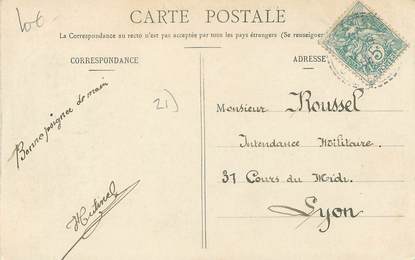 10€
CARTE POSTALE
La Correspondance au recto n'est pas acceptée par tous les pays étrangers (Se renseigner
CORRESPONDANCE
ADRESSE
21)
Bonne poignée de main
Monsieur Roussel
Intendance Militaire
37 Cours du Midi.
Lyon